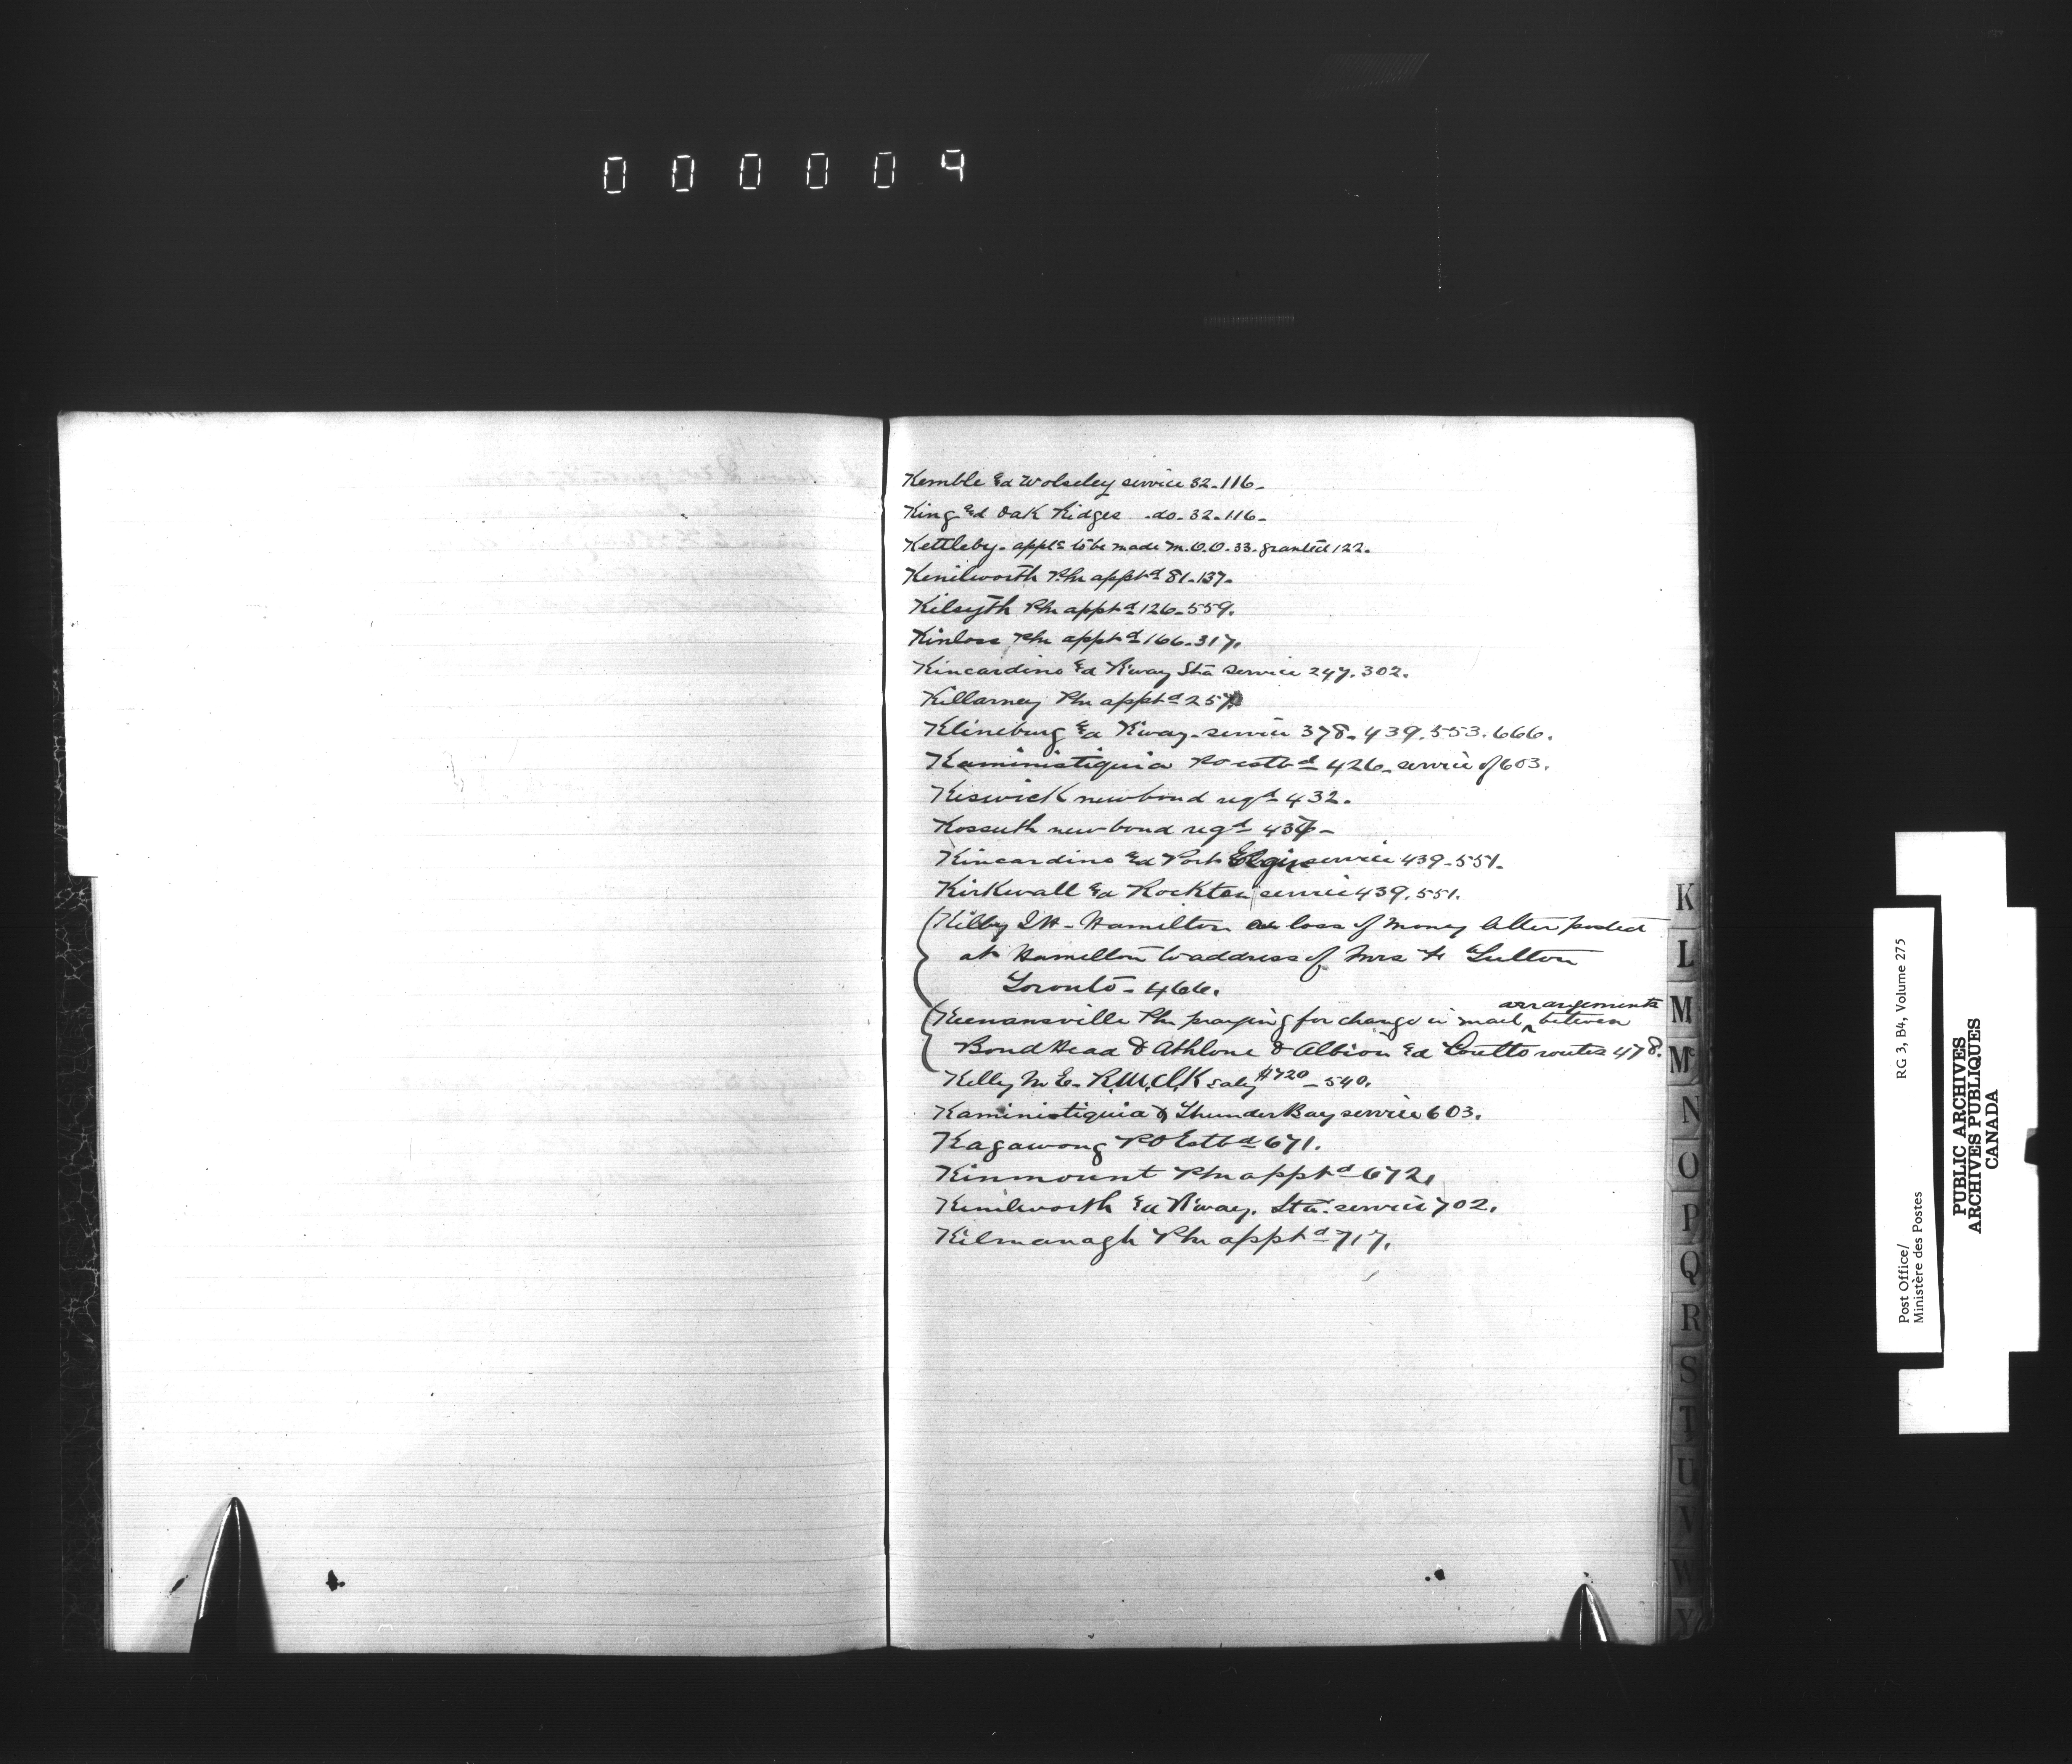 000009
Kemble & Wolseley service 32-116-
King & Oak Ridges .do. 32-116-
Kettleby- appls to be made M.O.O. 33. granted 122.
Kenilworth Pm apptd 81-137-
Kilsyth Pm apptd 126-559.
Kinloss Pm apptd 166-317.
Kincardine & Rway Sta service 247.302.
Killarney Pm apptd 257
Klineburg & Rway. service 378-439.553.666.
Kaministiquia PO estbd 426- service of 603.
Keswick new bond reqd 432.
Kossuth new bond reqd
Kincardine & Port Elgin service 439-551.
Kirkwall & Rockton service 439.551.
Kilby Hamilton loss of money letter posted
at Hamilton to address of Mrs
Toronto- 466.
Keenansville Pm praying for change in mail arrangements between
Bond Head & Athlone & Albion & Coulls routes 478.
Kelly M E- R.M.C.K saly $720- 540.
Kaministiquia & Thunder Bay service 603.
Kagawong PO Estbd 671.
Kinmount Pm apptd 672.
Kenilworth & Rway. Sta. service 702.
Kilmanagh Pm apptd 717.
K
L
M
Mc
N
O
P
Q
R
S
T
U
V
W
Y
Post Office/
Ministère des Postes
RG 3, B4, Volume 275
PUBLIC ARCHIVES
ARCHIVES PUBLIQUES
CANADA